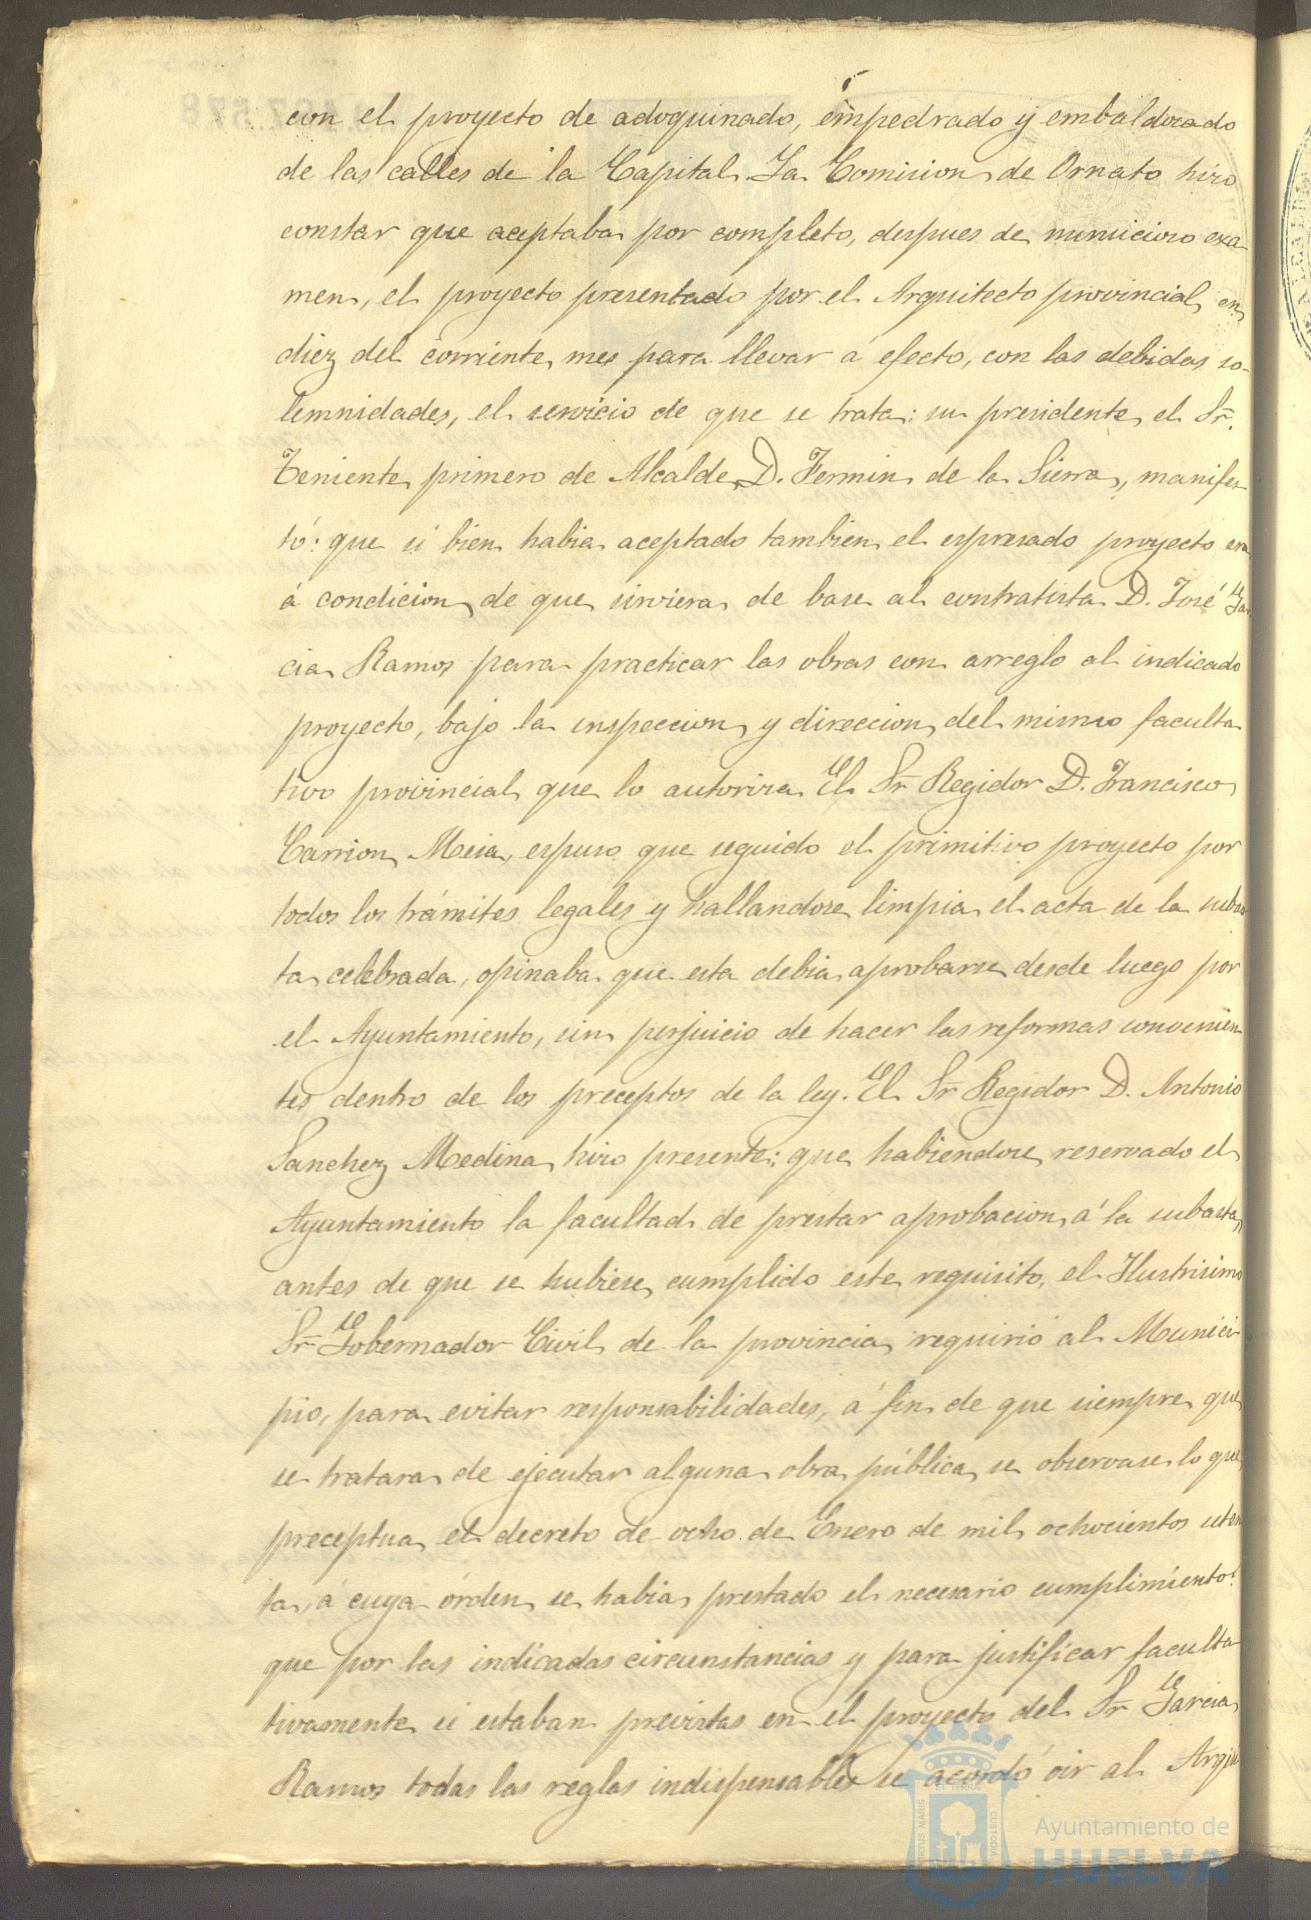 con el proyecto de adoquinado, empedrado y embaldosado
de las calles de la Capital. La Comision de Ornato hizo
constar que aceptaba por completo, despues de minucioso exa-
men, el proyecto presentado por el Arquitecto provincial en
diez del corriente mes para llevar á efecto, con las debidas so-
lemnidades, el servicio de que se trata: su presidente el Sr.
Teniente primero de Alcalde D. Fermin de la Sierra, manifes-
tó: que si bien habia aceptado tambien el espresado proyecto era
á condicion de que sirviera de base al contratista D. José Gar
cia Ramos para practicar las obras con arreglo al indicado
proyecto, bajo la inspeccion y direccion del mismo faculta
tivo provincial que lo autoriza. El Sr. Regidor D. Francisco
Carrion Mesia, espuso que seguido el primitivo proyecto por
todos los trámites legales y hallandose limpia el acta de la subas
ta celebrada, opinaba que esta debia aprobarse desde luego por
el Ayuntamiento, sin perjuicio de hacer las reformas convenien
tes dentro de los preceptos de la ley. El Sr Regidor D. Antonio
Sanchez Medina hizo presente: que habiendose reservado el
Ayuntamiento la facultad de prestar aprobacion á la subasta,
antes de que se hubiese cumplido este requisito, el Ilustrisimo
Sr. Gobernador Civil de la provincia requirió al Munici
pio, para evitar responsabilidades, á fin de que siempre que
se tratara de ejecutar alguna obra pública se observase lo que
preceptua el decreto de ocho de Enero de mil ochocientos seten
ta, á cuya órden se habia prestado el necesario cumplimiento:
que por las indicadas circunstancias y para justificar faculta
tivamente si estaban previstas en el proyecto del Sr Garcia
Ramos todas las reglas indispensables se acordó oir al Arqui
Ayuntamiento de
HUELVA